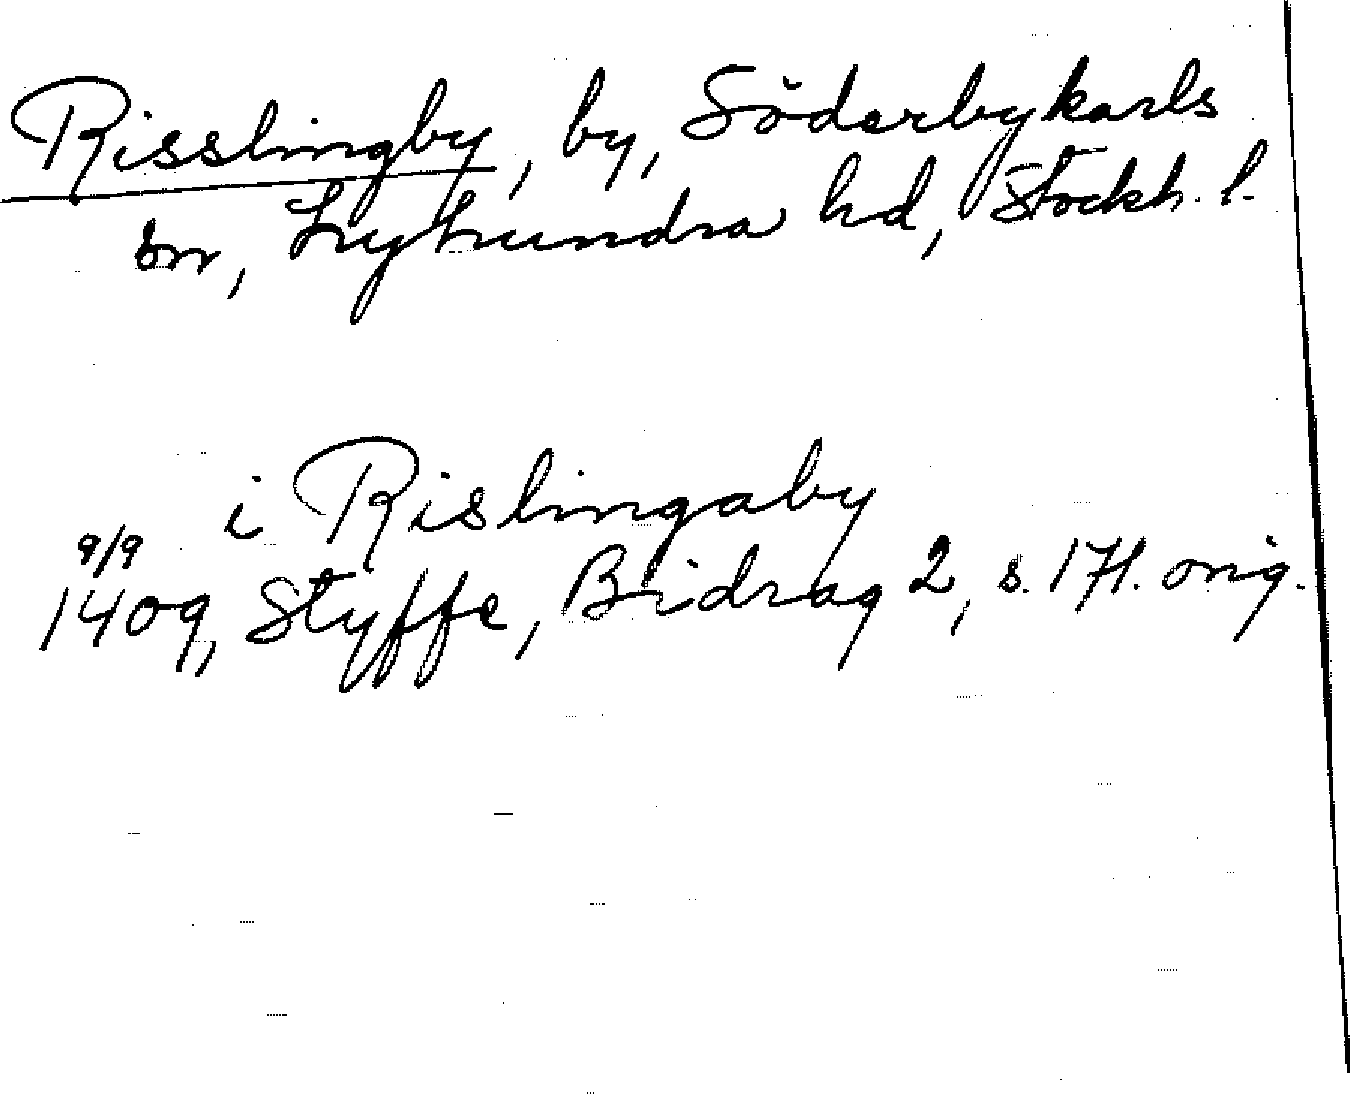 Risslingby, by, Söderbykarls
sn, Lyhundra hd, Stockh. l.
i Rislingaby
9/9
1409, Styffe, Bidrag 2, s. 171. orig.